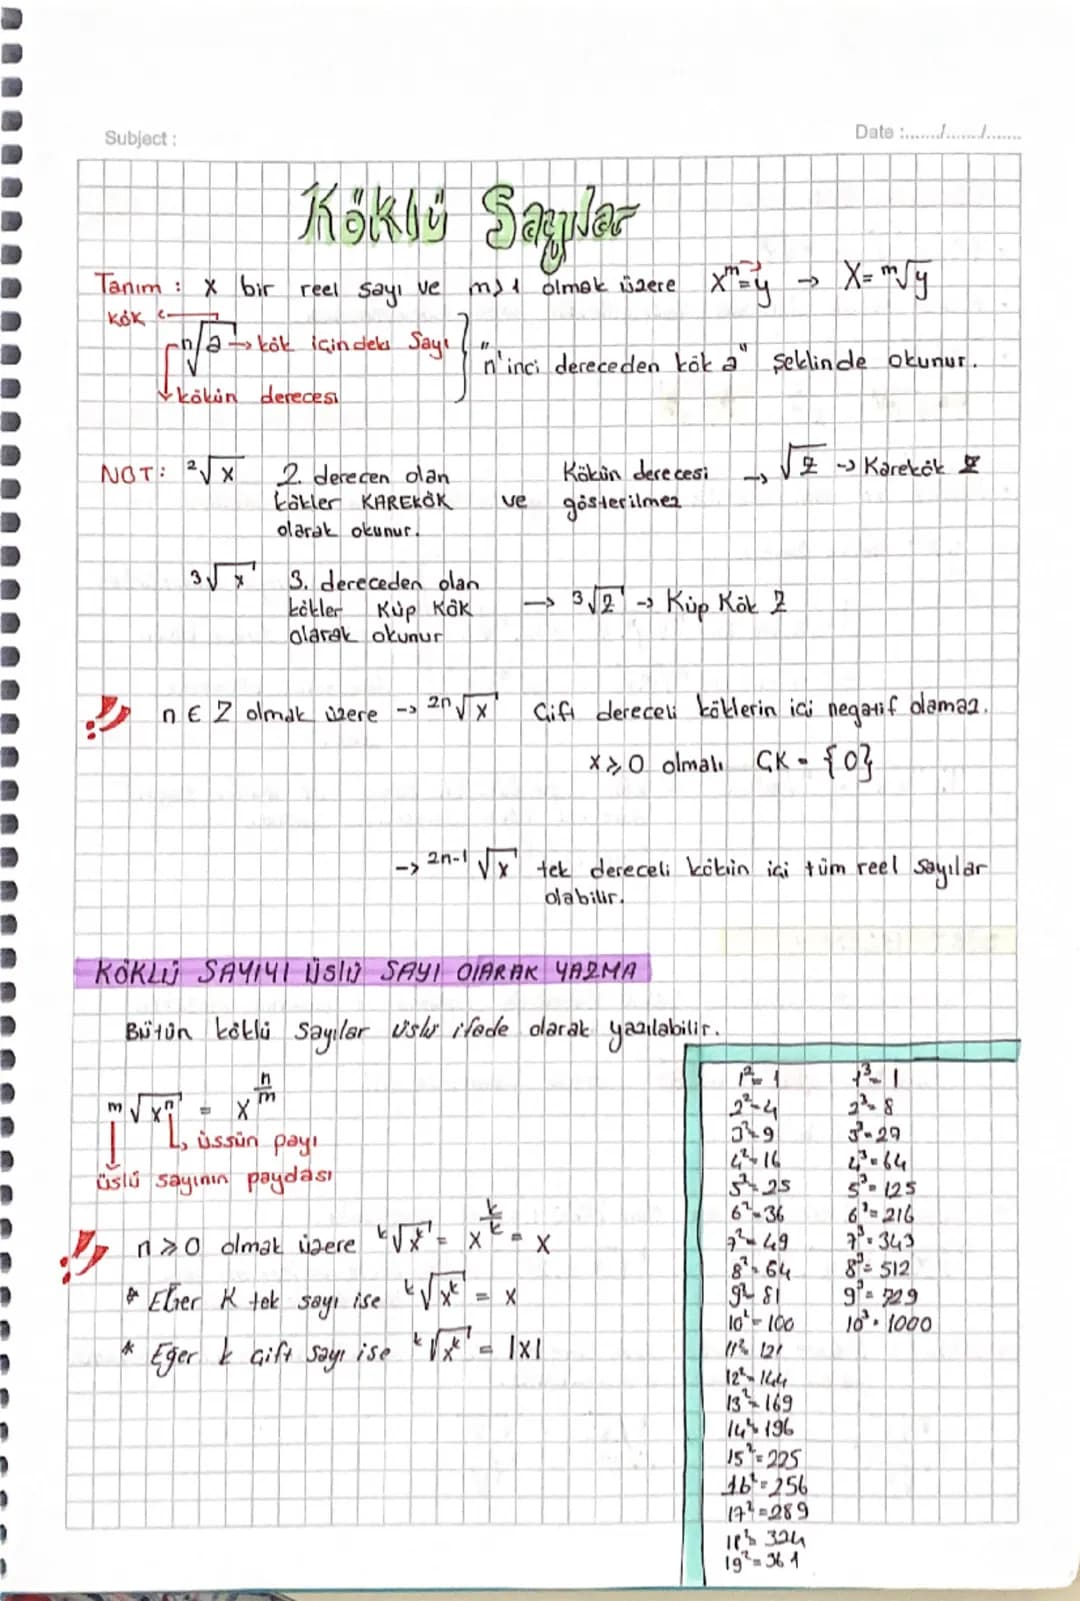 Subject :
Date :......./......./.......
Köklü Sayılar
Tanım : x bir reel sayı ve m>1 olmak üzere x^m=y → X= ᵐ√y
Kök ←
ⁿ√a → kök içindeki Sayı
"n'inci dereceden kök a" şeklinde okunur.
kökün derecesi
NOT: ²√x 2. derecen olan kökler KAREKÖK olarak okunur. ve Kökün derecesi gösterilmez → √2 → Karekök 2
³√x 3. dereceden olan kökler Küp Kök olarak okunur → ³√2 → Küp Kök 2
n ∈ Z olmak üzere → ²ⁿ√x Çift dereceli köklerin içi negatif olamaz.
x ≥ 0 olmalı ÇK = {0}
→ ²ⁿ⁻¹√x tek dereceli kökün içi tüm reel sayılar
olabilir.
KÖKLÜ SAYIYI ÜSLÜ SAYI OLARAK YAZMA
Bütün köklü sayılar üslü ifade olarak yazılabilir.
ᵐ√xⁿ = x^(n/m)
üssün payı
üslü sayının paydası
n > 0 olmak üzere ᵏ√xᵏ = x^(k/k) = x
* Eğer K tek sayı ise ᵏ√xᵏ = x
* Eğer k çift sayı ise ᵏ√xᵏ = |x|
1²=1 1³=1
2²=4 2³=8
3²=9 3³=27
4²=16 4³=64
5²=25 5³=125
6²=36 6³=216
7²=49 7³=343
8²=64 8³=512
9²=81 9³=729
10²=100 10³=1000
11²=121
12²=144
13²=169
14²=196
15²=225
16²=256
17²=289
18²=324
19²=361